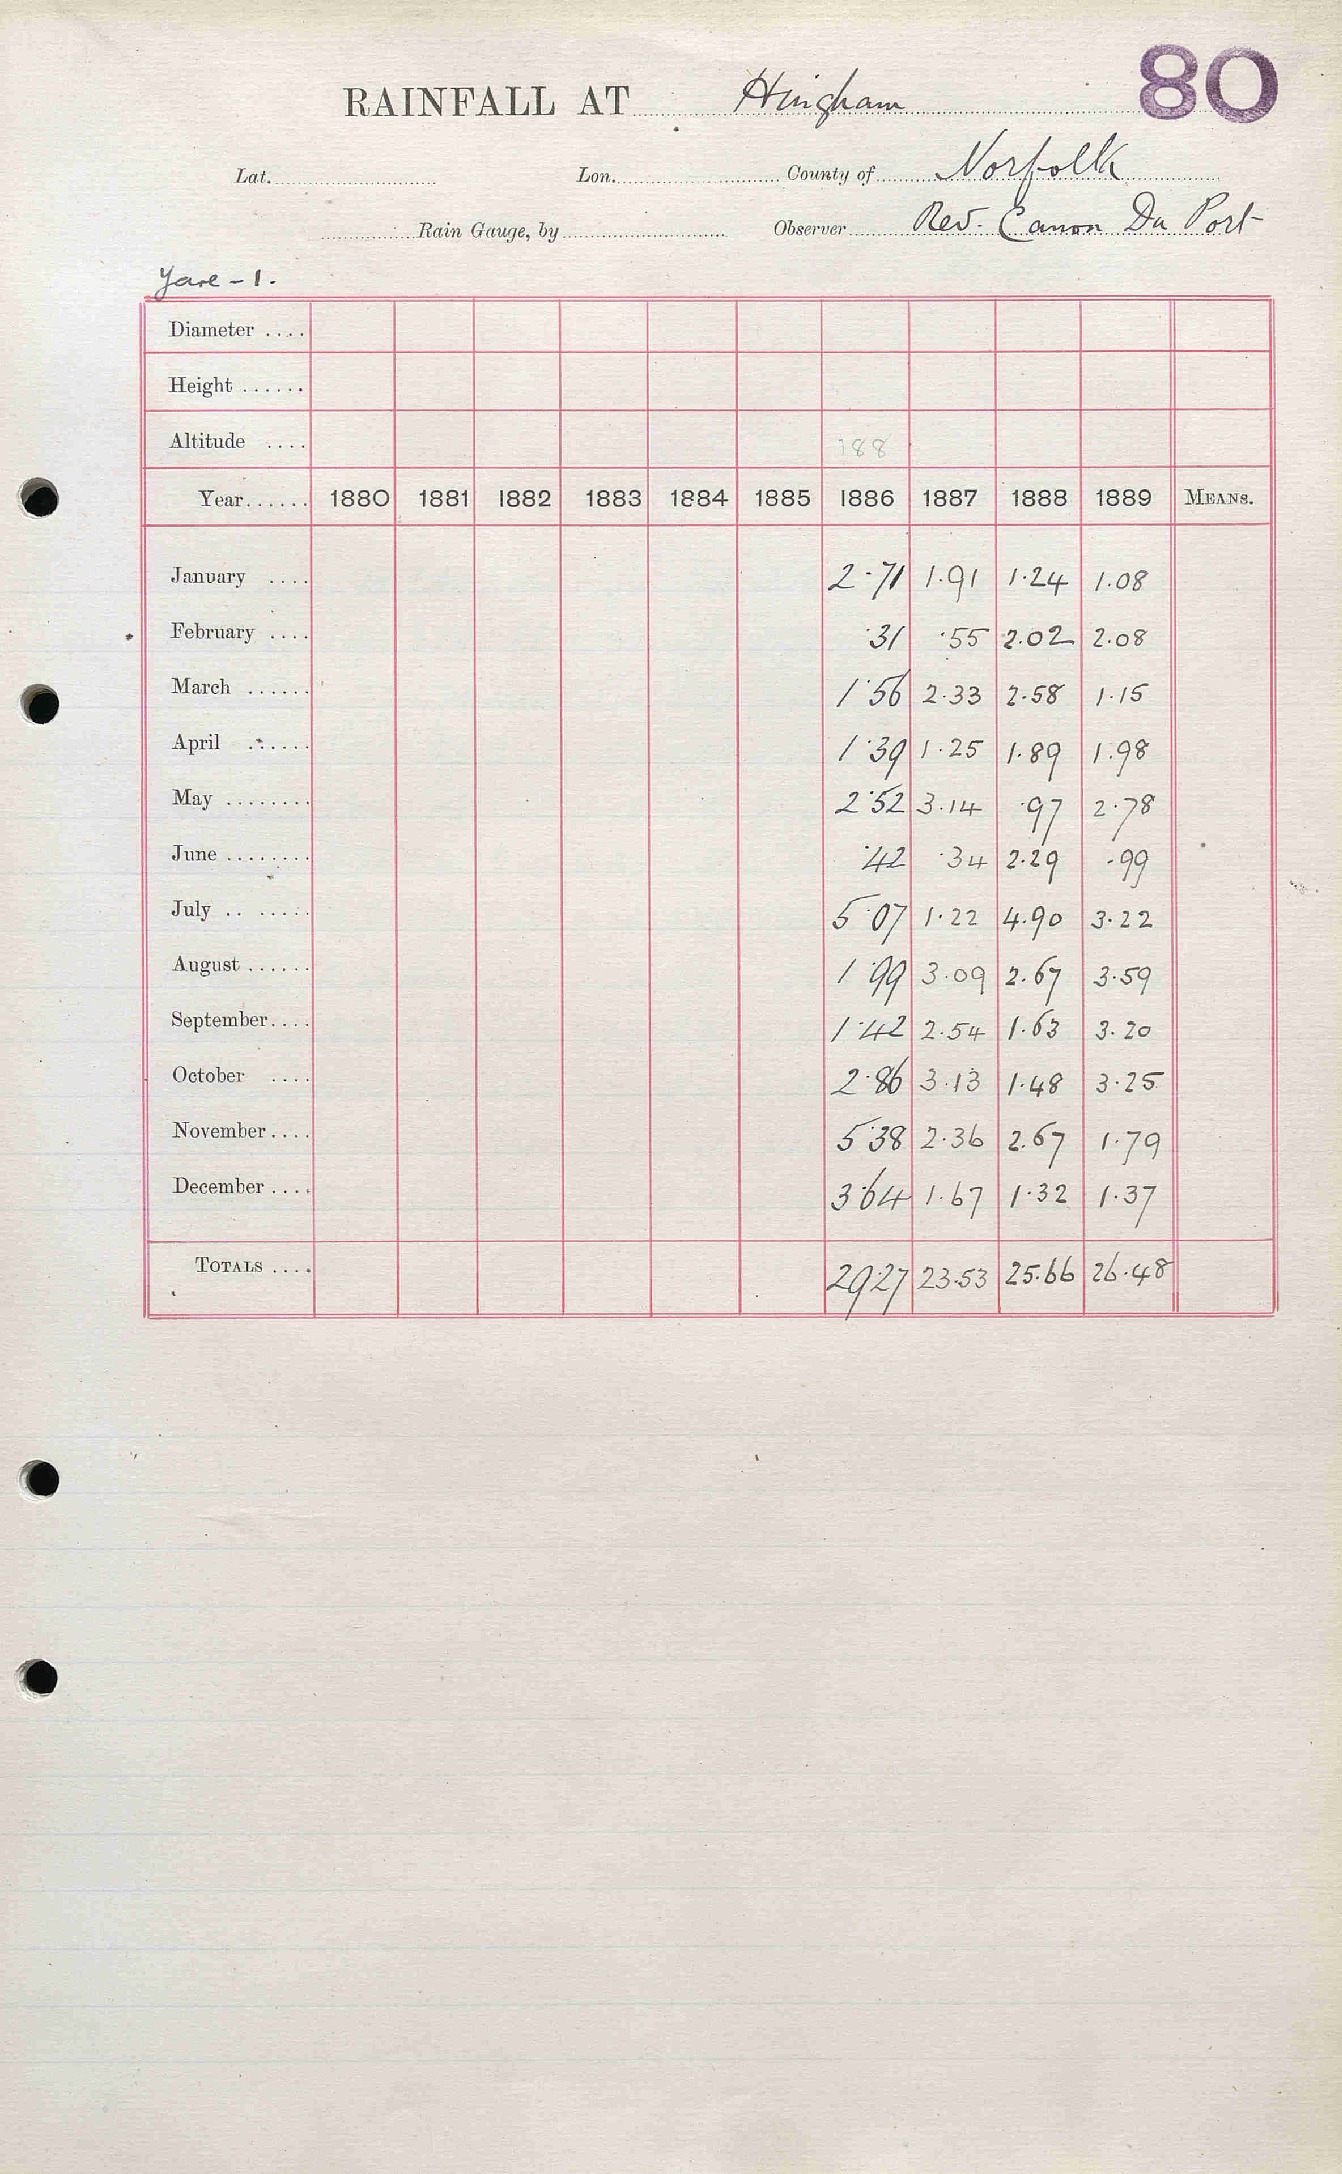 80
RAINFALL AT Hingham
Lat. Lon. County of Norfolk
Rain Gauge, by Observer Rev. Canon Du Port
Yare - 1.
Diameter ....
Height ......
Altitude .... 188
Year...... 1880 1881 1882 1883 1884 1885 1886 1887 1888 1889 MEANS.
January .... 2.71 1.91 1.24 1.08
February .... .31 .55 2.02 2.08
March ...... 1.56 2.33 2.58 1.15
April ...... 1.39 1.25 1.89 1.98
May ........ 2.52 3.14 .97 2.78
June ........ .42 .34 2.29 .99
July .. ..... 5.07 1.22 4.90 3.22
August ...... 1.99 3.09 2.67 3.59
September.... 1.42 2.54 1.63 3.20
October .... 2.86 3.13 1.48 3.25
November.... 5.38 2.36 2.67 1.79
December .... 3.64 1.67 1.32 1.37
TOTALS .... 29.27 23.53 25.66 26.48